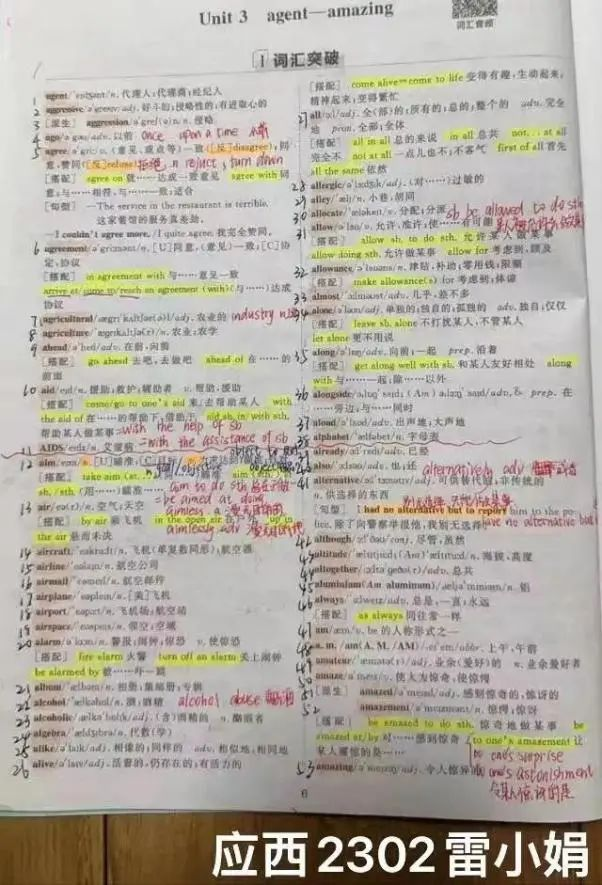 Unit 3 agent—amazing
词汇音频
Ⅰ 词汇突破
1 agent n. 代理人;代理商;经纪人
2 aggressive adj. 好斗的;侵略性的;有进取心的
3 [派生] aggression n. 侵略
4 ago adv. 以前 once upon a time
5 agree (意见、观点等)一致([反]disagree);同
意,赞同([反]refuse) 拒绝 turn down
[搭配] agree on 就……达成一致意见 agree with 同
意;与……相符,与……一致;适合
[句型] —The service in the restaurant is terrible.
这家餐馆的服务真差劲。
—I couldn't agree more. / I quite agree. 我完全赞同。
6 agreement n. [U]同意,(意见)一致;[C]协
定,协议
[搭配] in agreement with 与……意见一致
arrive at/come to/reach an agreement (with) (与……)达成
协议
7 agricultural adj. 农业的 industry n.
8 agriculture n. 农业;农学
9 ahead adv. 在前,向前
[搭配] go ahead 去吧,去做吧 ahead of 在……的
前面
10 aid n. 援助;救护;辅助者 v. 帮助,援助
[搭配] come/go to one's aid 来/去帮助某人 with
the aid of 在……的帮助下,借助于 aid sb. in/with sth.
帮助某人做某事 =with the help of sb
11 AIDS n. 艾滋病 =with the assistance of sb
12 aim
[搭配] take aim (at...) aim (sth.) at
sb./sth. (用……)瞄准…… aim to do sth
be aimed at doing
13 air n. 空气;天空 aimless a
[搭配] by air 乘飞机 in the open air up in
the air 悬而未决 aimlessly adv
14 aircraft n. 飞机(单复数同形);航空器
15 airline n. 航空公司
16 airmail n. 航空邮件
17 airplane n. [美]飞机
18 airport n. 飞机场;航空站
19 airspace n. 领空;空域
20 alarm n. 警报;闹钟;惊恐 v. 使惊恐
[搭配] fire alarm 火警 turn off an alarm 关上闹钟
be alarmed by 被……吓一跳
21 album n. 相册;集邮册;专辑
22 alcohol n. 酒;酒精 alcohol abuse
23 alcoholic adj. (含)酒精的 n. 酗酒者
24 algebra n. 代数(学)
25 alike adj. 相像的;同样的 adv. 相似地;相同地
26 alive adj. 活着的,仍存在的;有活力的
[搭配] come alive=come to life 变得有趣,生动起来,
精神起来;变得繁忙
27 all adj. 全(部)的;所有的;总的;整个的 adv. 完全
地 pron. 全部;全体
[搭配] all in all 总的来说 in all 总共 not... at all
完全不 not at all 一点儿也不;不客气 first of all 首先
all the same 依然
28 allergic adj. (对……)过敏的
29 alley n. 小巷,胡同
30 allocate v. 分配;分派 sb be allowed to do sth
31 allow v. 允许,准许;使……有可能
[搭配] allow sb. to do sth. 允许某人做某事
allow doing sth. 允许做某事 allow for 考虑到,顾及
32 allowance n. 津贴,补助;零用钱;限额
[搭配] make allowance(s) for 考虑到;体谅
33 almost adv. 几乎,差不多
34 alone adj. 单独的;独自的;孤独的 adv. 独自;仅仅
[搭配] leave sb. alone 不打扰某人,不管某人
let alone 更不用说
35 along adv. 向前;一起 prep. 沿着
[搭配] get along well with sb. 和某人友好相处 along
with 与……一起;除……以外
36 alongside adv. & prep. 在
……旁边;与……同时
37 aloud adv. 出声地;大声地
38 alphabet n. 字母表
39 already adv. 已经
also adv. 也;还 alternatively adv
alternative adj. 可供替代的,非传统的
n. 供选择的东西
[句型] I had no alternative but to report him to the po-
lice. 除了向警察举报他,我别无选择。 have no alternative but
although conj. 尽管,虽然
altitude n. 海拔,高度
altogether adv. 总共
45 aluminium(Am aluminum) n. 铝
46 always adv. 总是,一直;永远
[搭配] as always 同往常一样
am v. be 的人称形式之一
48 a. m. /am(A. M. /AM) abbr. 上午,午前
amateur adj. 业余(爱好)的 n. 业余爱好者
amaze v. 使人为惊奇,使惊愕
51 [派生] amazed adj. 感到惊奇的,惊讶的
52 amazement n. 惊愕;惊讶
[搭配] be amazed to do sth. 惊奇地做某事 be
amazed at/by 对……感到惊奇 to one's amazement 让
某人震惊的是…… to one's surprise
53 amazing adj. 令人惊异的 to one's astonishment
6
应西2302雷小娟